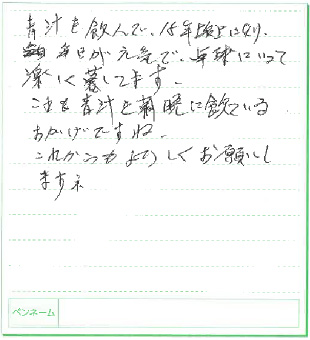 青汁を飲んで、15年以上になり
毎日が元気で、卓球にいって
楽しく暮してます。
これも青汁を朝晩に飲んでいる
おかげですね。
これからもよろしくお願いし
ますネ
ペンネーム